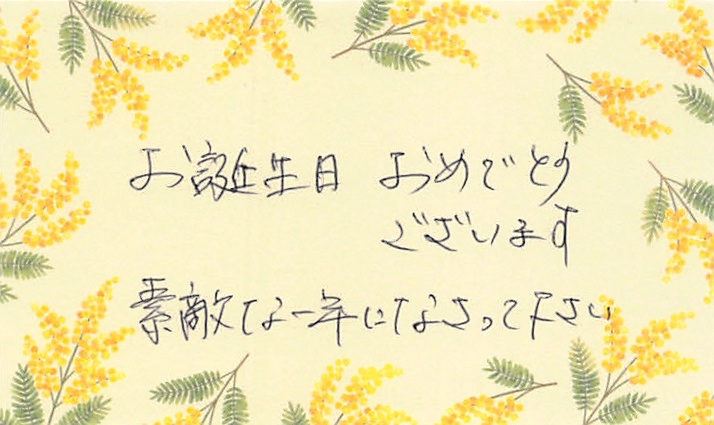 お誕生日 おめでとう
ございます
素敵な一年になさって下さい